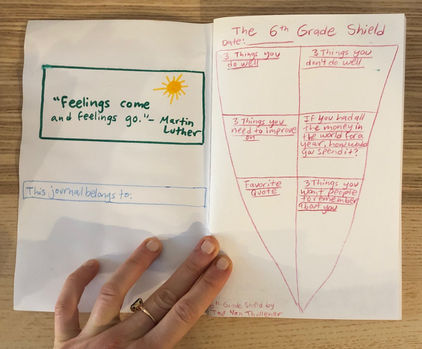 "Feelings come
and feelings go." - Martin
Luther
This journal belongs to:
The 6th Grade Shield
Date:
3 Things you
do well
3 Things you
don't do well
3 Things you
need to improve
on
If you had all
the money in
the world for a
year, how would
you spend it?
Favorite
Quote
3 Things you
want people
to remember
about you
Grade Shield by